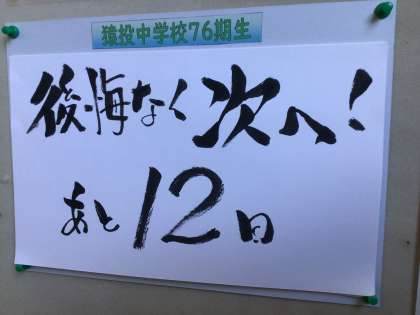 猿投中学校76期生
後悔なく次へ!
あと12日